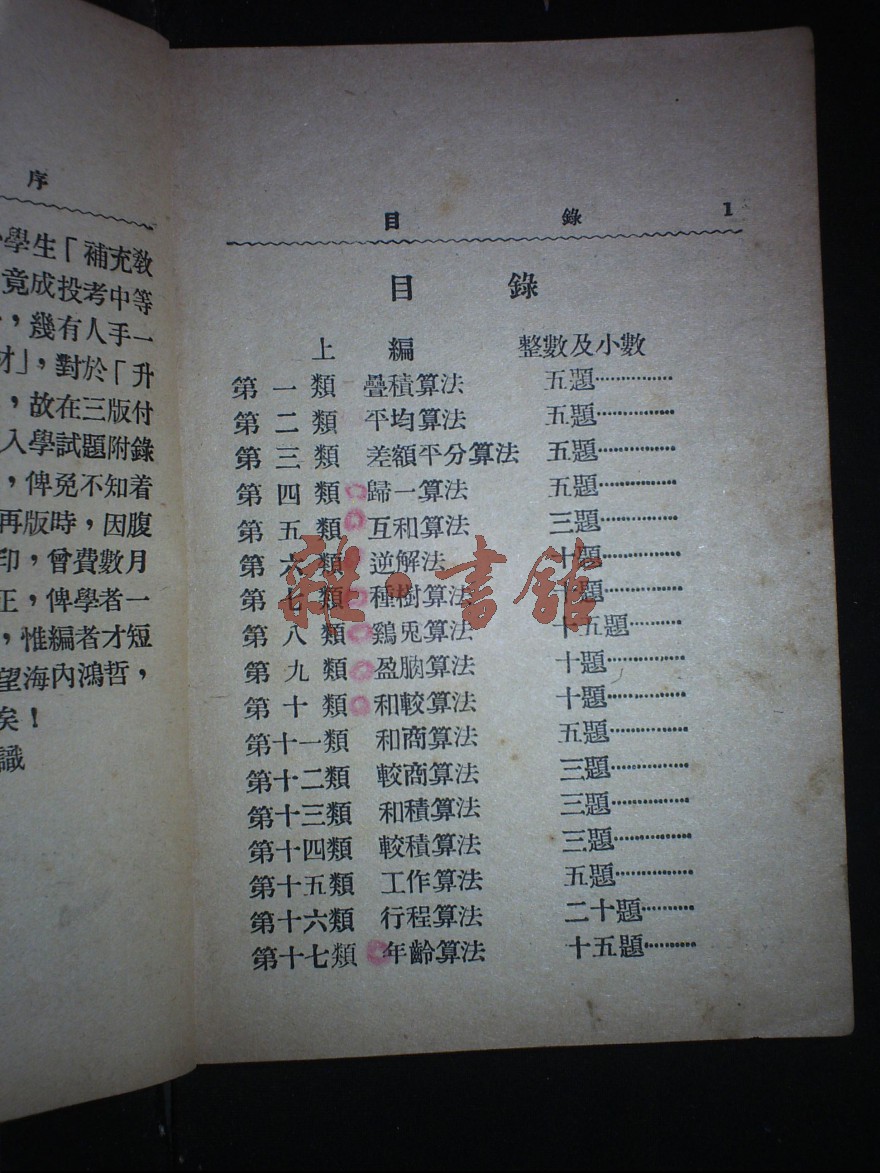 序
學生「補充教
竟成投考中等
，幾有人手一
材」，對於「升
，故在三版付
入學試題附錄
，俾免不知着
再版時，因腹
印，曾費數月
正，俾學者一
，惟編者才短
望海內鴻哲，
矣！
識
目 錄 1
目 錄
上 編 整數及小數
第一類 疊積算法 五題……………
第二類 平均算法 五題……………
第三類 差額平分算法 五題……………
第四類 歸一算法 五題……………
第五類 互和算法 三題……………
第六類 逆解法 十題……………
第七類 種樹算法 十題……………
第八類 鷄兎算法 十五題…………
第九類 盈朒算法 十題……………
第十類 和較算法 十題……………
第十一類 和商算法 五題……………
第十二類 較商算法 三題……………
第十三類 和積算法 三題……………
第十四類 較積算法 三題……………
第十五類 工作算法 五題……………
第十六類 行程算法 二十題…………
第十七類 年齡算法 十五題…………
雜·書館